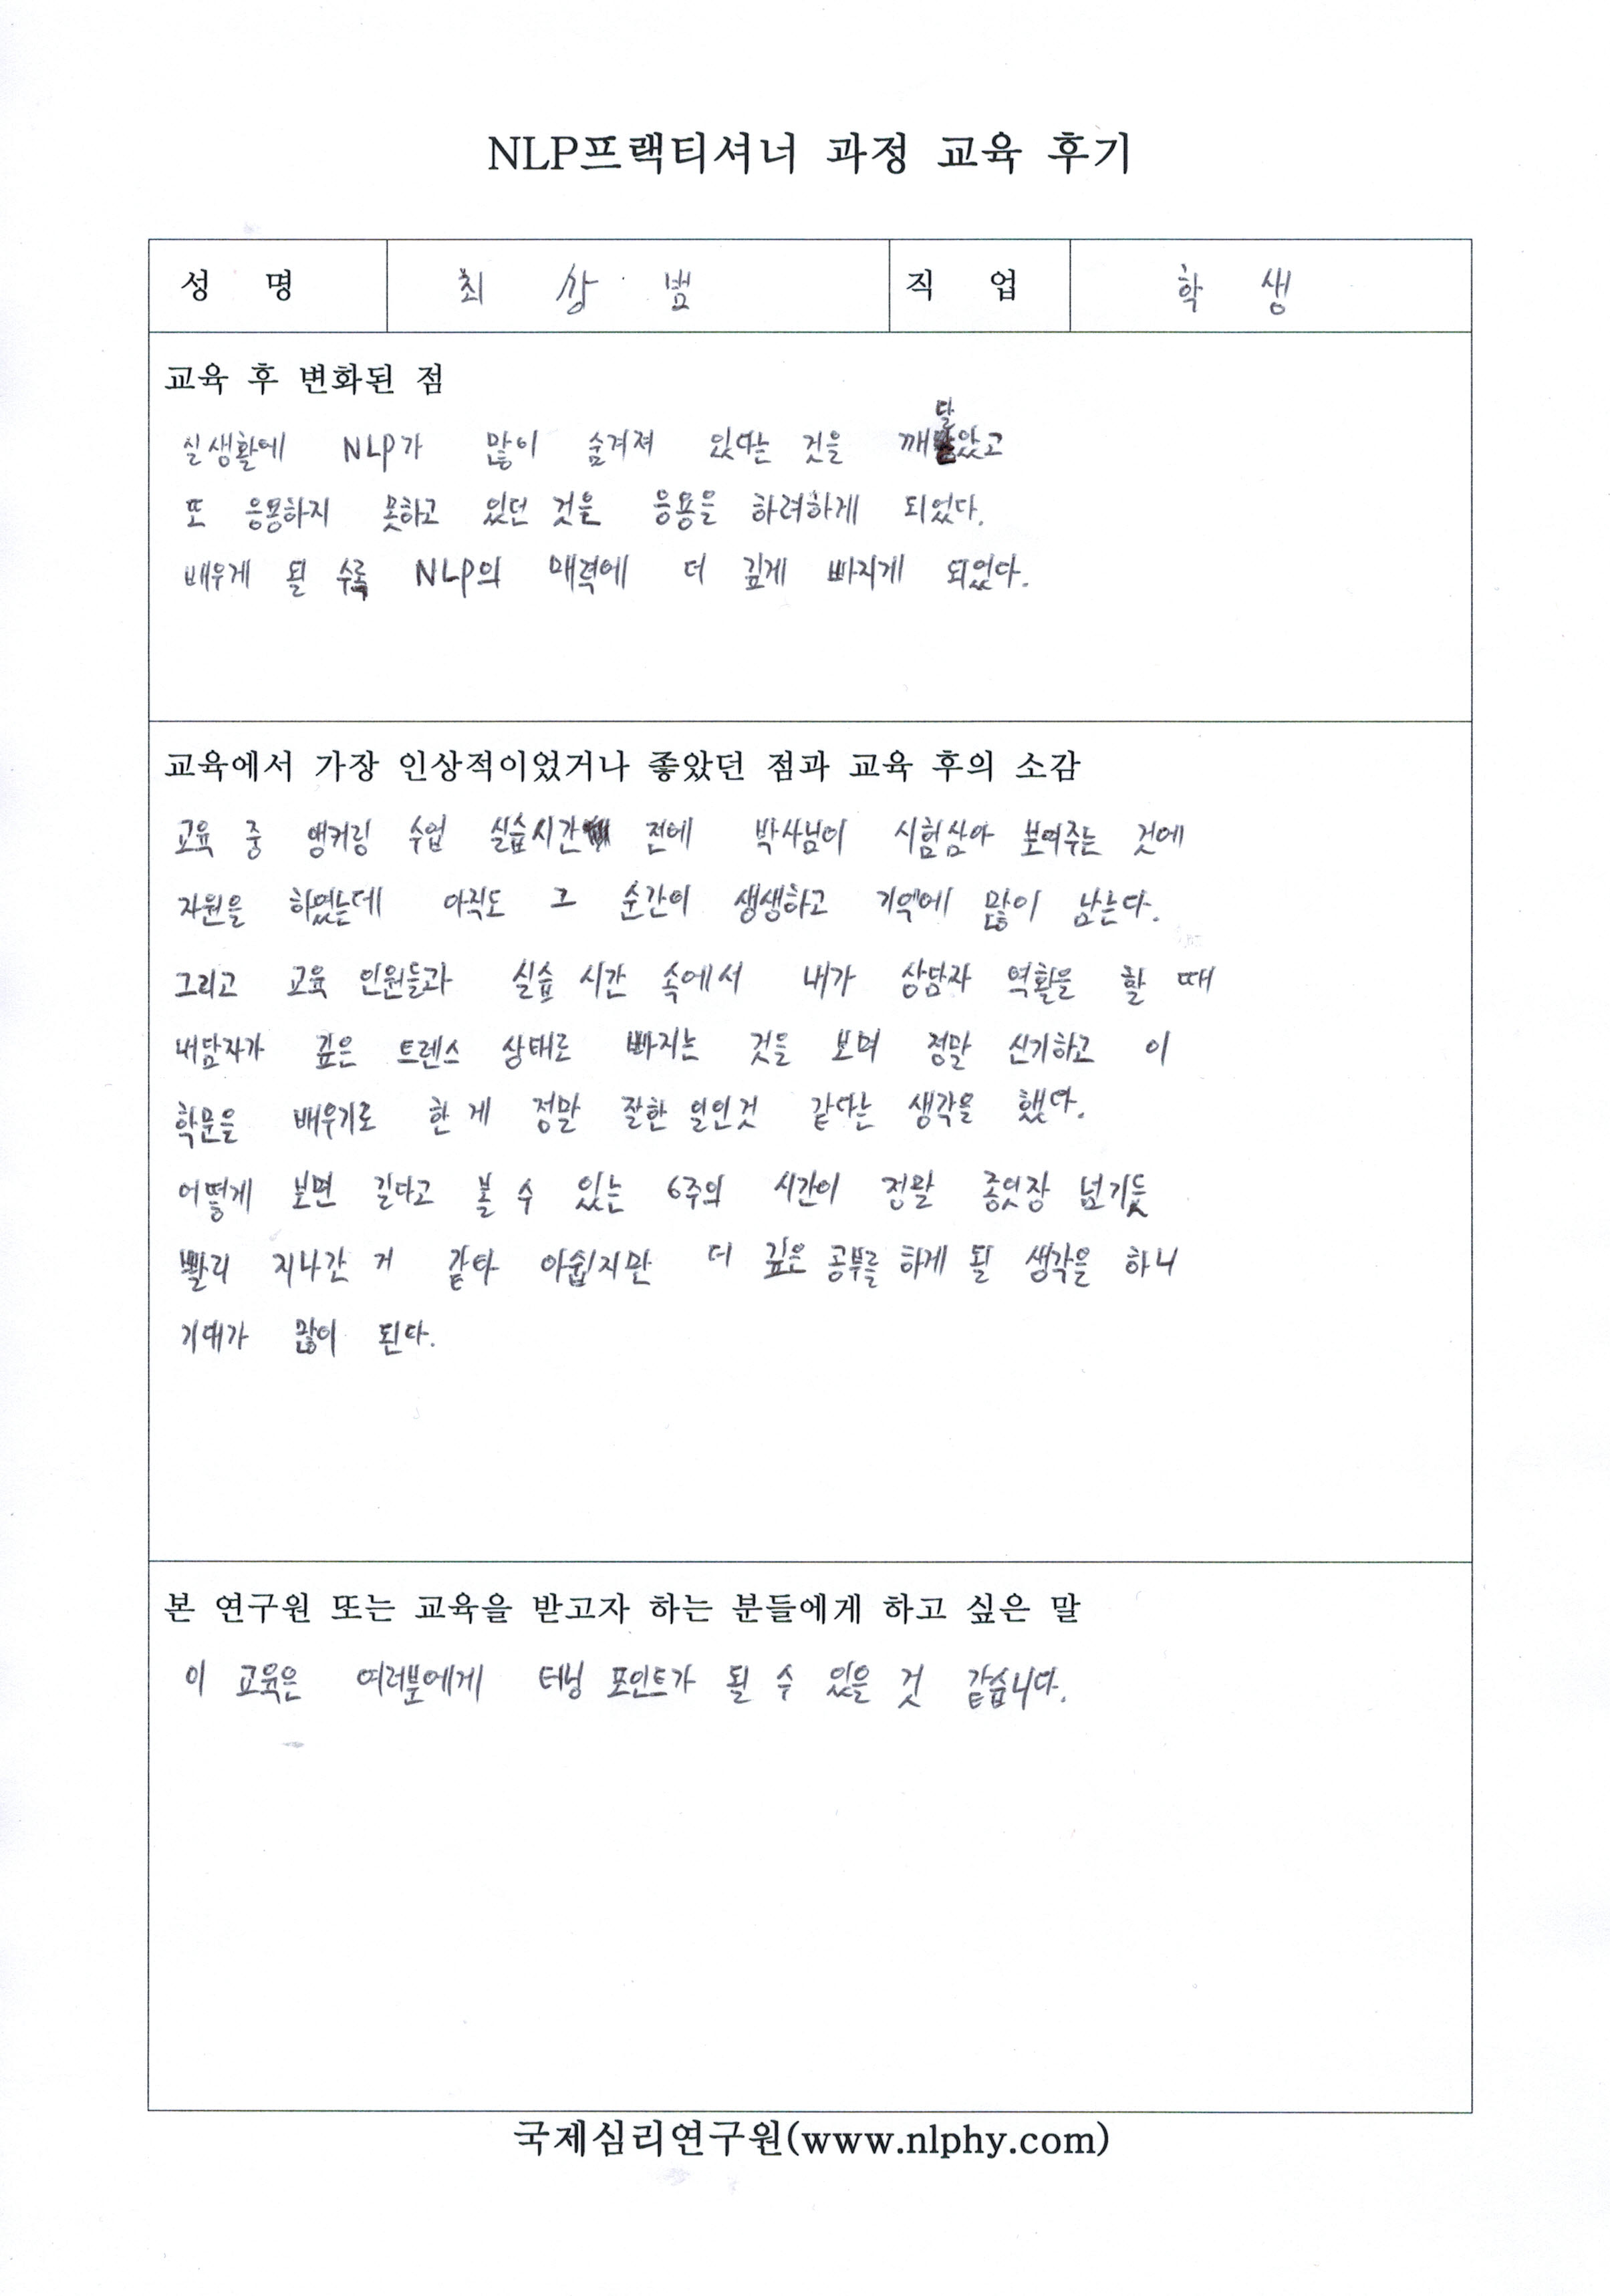 NLP프랙티셔너 과정 교육 후기
성 명 최 상 범 직 업 학 생
교육 후 변화된 점
실생활에 NLP가 많이 숨겨져 있다는 것을 깨달았고
또 응용하지 못하고 있던 것을 응용을 하려하게 되었다.
배우게 될 수록 NLP의 매력에 더 깊게 빠지게 되었다.
교육에서 가장 인상적이었거나 좋았던 점과 교육 후의 소감
교육 중 앵커링 수업 실습시간 전에 박사님이 시험삼아 보여주는 것에
자원을 하였는데 아직도 그 순간이 생생하고 기억에 많이 남는다.
그리고 교육 인원들과 실습 시간 속에서 내가 상담자 역활을 할 때
내담자가 깊은 트렌스 상태로 빠지는 것을 보며 정말 신기하고 이
학문을 배우기로 한 게 정말 잘한 일인것 같다는 생각을 했다.
어떻게 보면 길다고 볼 수 있는 6주의 시간이 정말 종잇장 넘기듯
빨리 지나간 거 같아 아쉽지만 더 깊은 공부를 하게 될 생각을 하니
기대가 많이 된다.
본 연구원 또는 교육을 받고자 하는 분들에게 하고 싶은 말
이 교육은 여러분에게 터닝 포인트가 될 수 있을 것 같습니다.
국제심리연구원(www.nlphy.com)